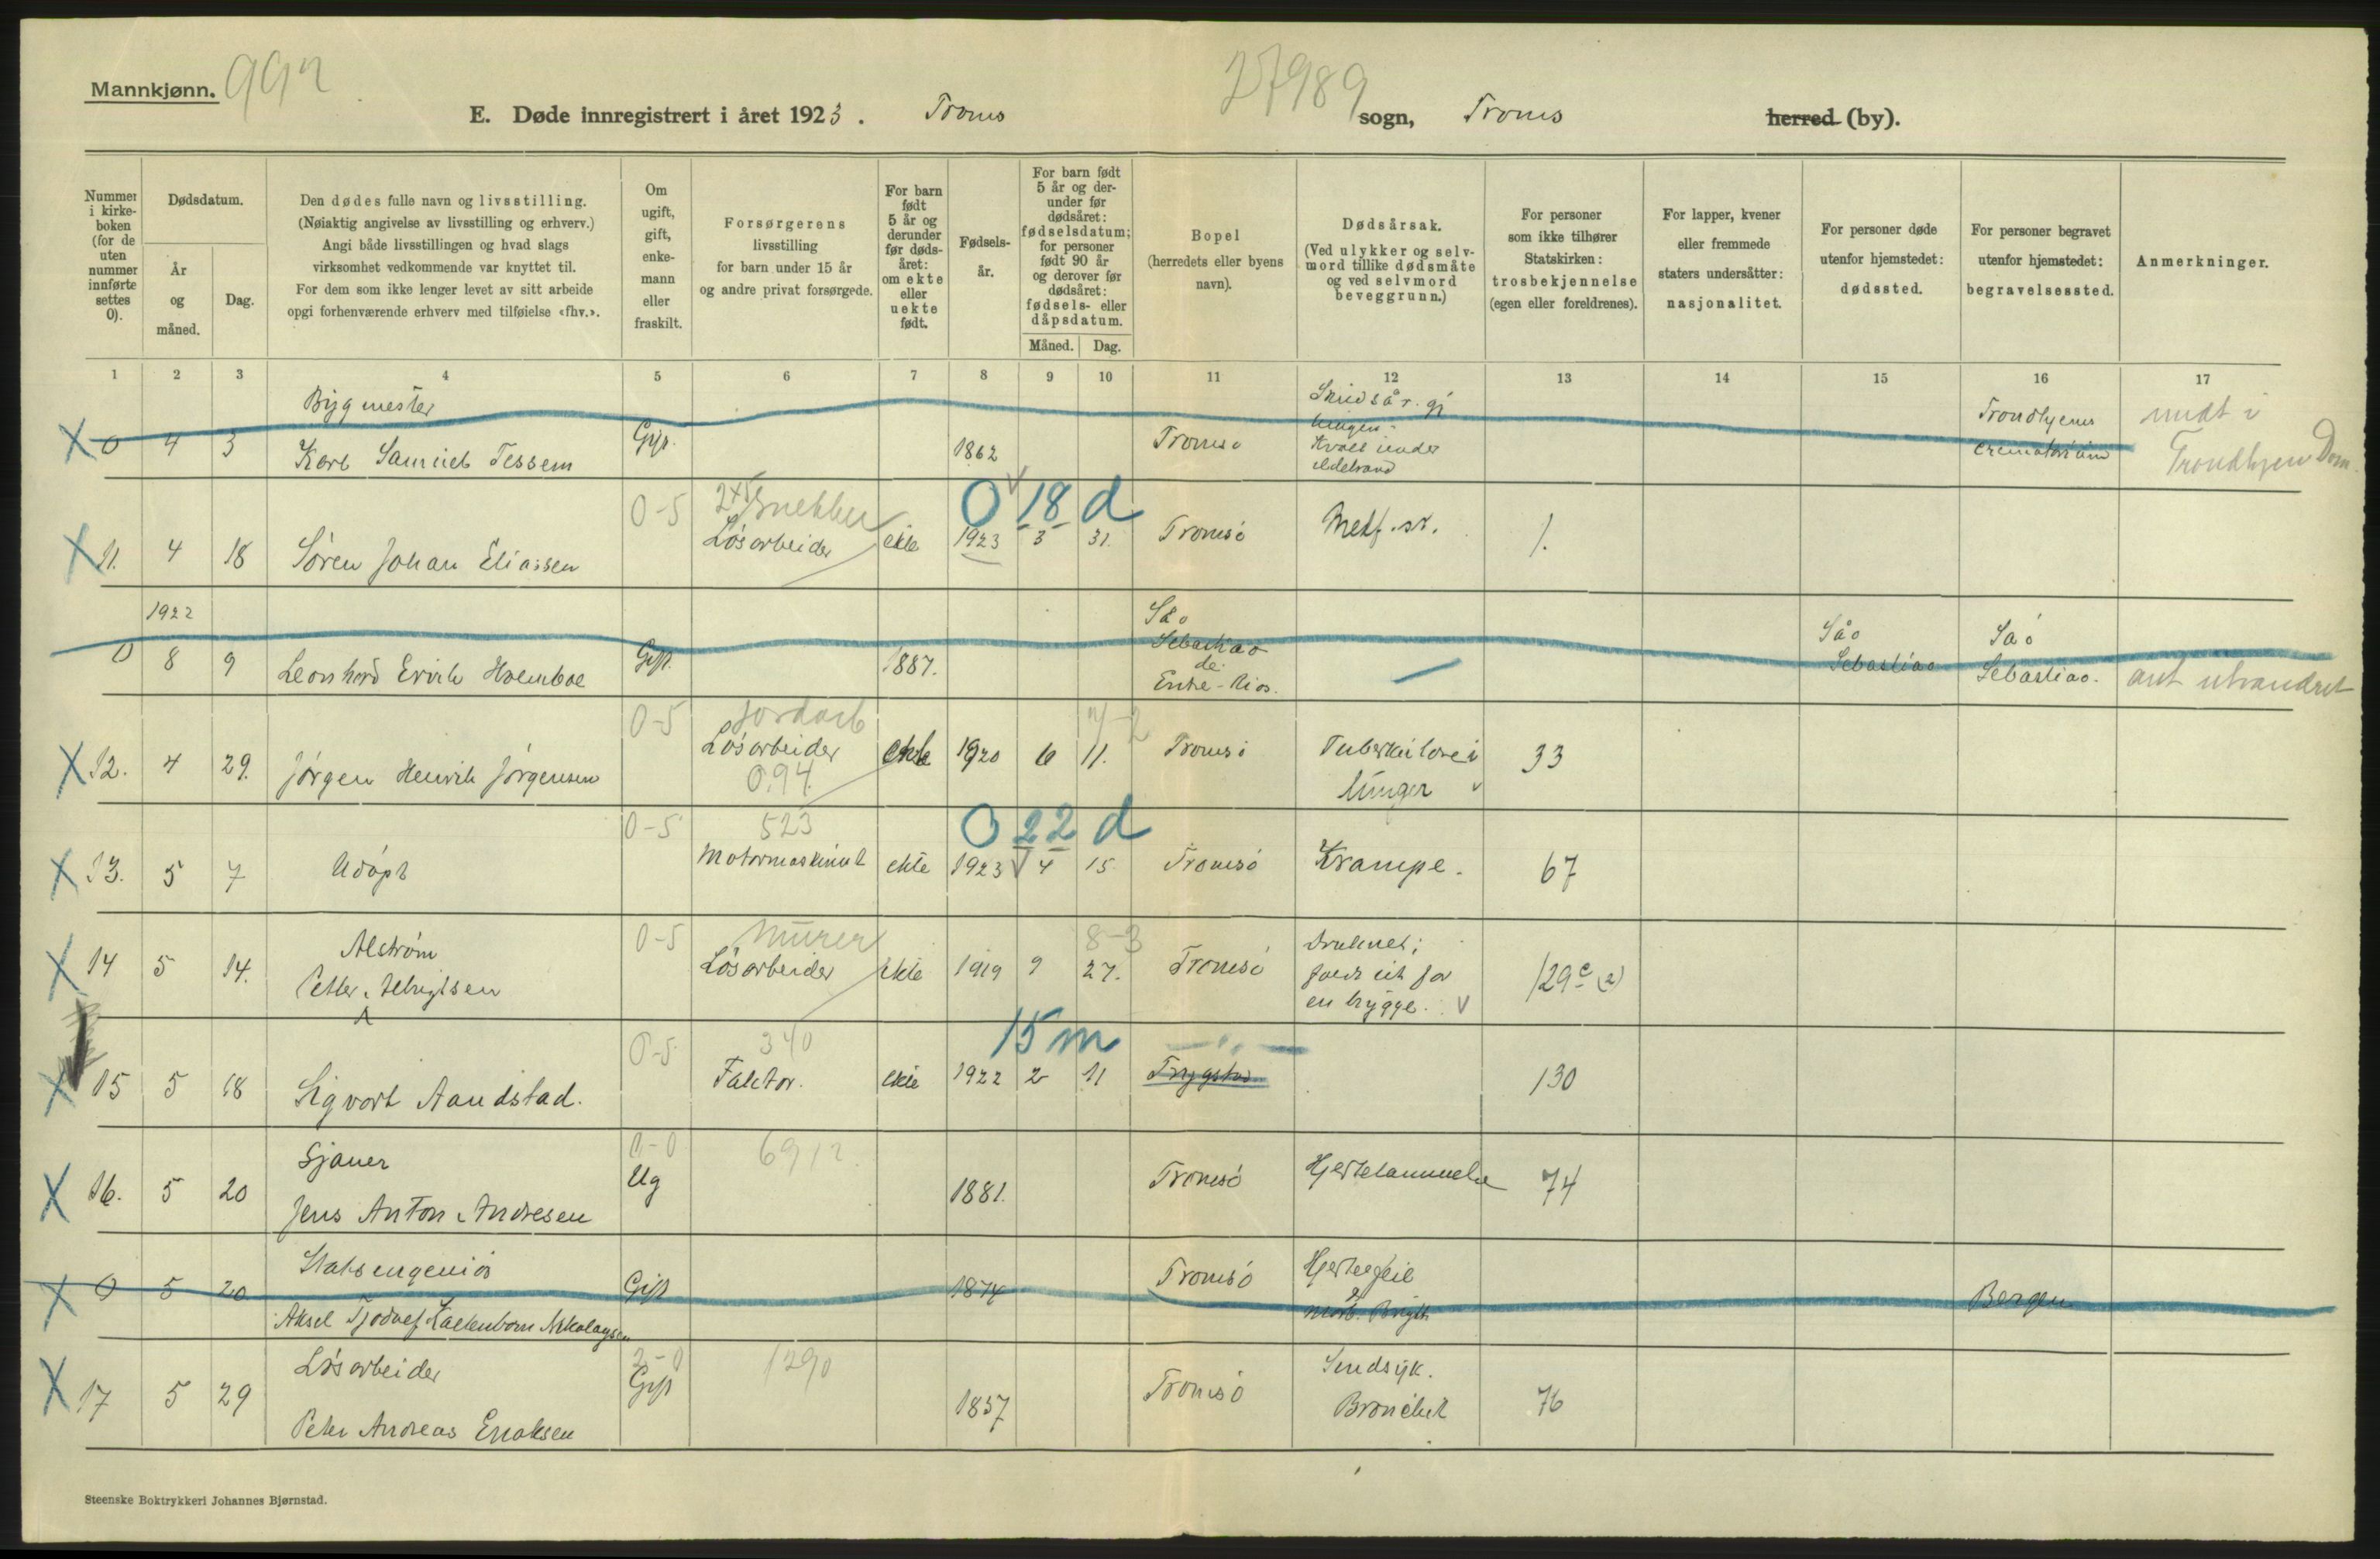 Mannkjønn.
27989
E. Døde innregistrert i året 1923. Troms sogn, Troms herred (by).
Nummer i kirkeboken (for de uten nummer innførte settes 0).
Dødsdatum.
År og måned.
Dag.
Den dødes fulle navn og livsstilling.
(Nøiaktig angivelse av livsstilling og erhverv.)
Angi både livsstillingen og hvad slags
virksomhet vedkommende var knyttet til.
For dem som ikke lenger levet av sitt arbeide
opgi forhenværende erhverv med tilføielse «fhv.».
Om ugift, gift, enkemann eller fraskilt.
Forsørgerens
livsstilling
for barn under 15 år
og andre privat forsørgede.
For barn født 5 år og derunder før dødsåret: om ekte eller uekte født.
Fødselsår.
For barn født 5 år og derunder før dødsåret: fødselsdatum; for personer født 90 år og derover før dødsåret: fødsels- eller dåpsdatum.
Måned. Dag.
Bopel
(herredets eller byens
navn).
Dødsårsak.
(Ved ulykker og selvmord tillike dødsmåte og ved selvmord beveggrunn.)
For personer
som ikke tilhører
Statskirken:
trosbekjennelse
(egen eller foreldrenes).
For lapper, kvener
eller fremmede
staters undersåtter:
nasjonalitet.
For personer døde
utenfor hjemstedet:
dødssted.
For personer begravet
utenfor hjemstedet:
begravelsessted.
Anmerkninger.
1 2 3 4 5 6 7 8 9 10 11 12 13 14 15 16 17
Bygmester
X 0 4 3 Karl Samuel Tessem Gift. 1862 Tromsø
Kvalt under
ildebrand
Trondhjems
crematorium
meldt i
Trondhjem Dom.
0-5 Snekker 0 18 d
X 11. 4 18 Søren Johan Eliassen Løsarbeider ekte 1923 3 31. Tromsø Medf. sv. 1.
1922
0 8 9 Leonhard Ervik Holmboe Gift. 1887.
São
Sebastiao
de
Entre-Rios.
São
Sebastiao
São
Sebastiao.
ant utvandret
0-5 Jordarb
X 12. 4 29. Jørgen Henrik Jørgensen Løsarbeider ekte 1920 6 11. Tromsø Tuberkulose i
lunger 33
094
0-5 523 0 22 d
X 13. 5 7 Udøpt Motormaskinist ekte 1923 4 15. Tromsø Krampe. 67
0-5 Murer 8-3
Alstrøm
X 14 5 14. Petter Albrigtsen Løsarbeider ekte 1919 9 27. Tromsø
Druknet;
faldt ut for
en brygge.
129 c (2)
0-5 340 15 m
X 15 5 18 Sigvart Aandstad. Faktor. ekte 1922 2 11 Trygstad 130
0-0 691
Sjauer
X 16. 5 20 Jens Anton Andresen Ug 1881. Tromsø Hjertelammelse 74
Statsingeniør
X 0 5 20 Aksel Tjodolf Kaltenborn Nikolaysen Gift 1874 Tromsø
Hjertefeil
morb. Brigth
Bergen
2-0 1290
Løsarbeider
X 17 5 29 Peter Andreas Enoksen Gift 1857 Tromsø
Sindsyk.
Bronchit 76
Steenske Boktrykkeri Johannes Bjørnstad.